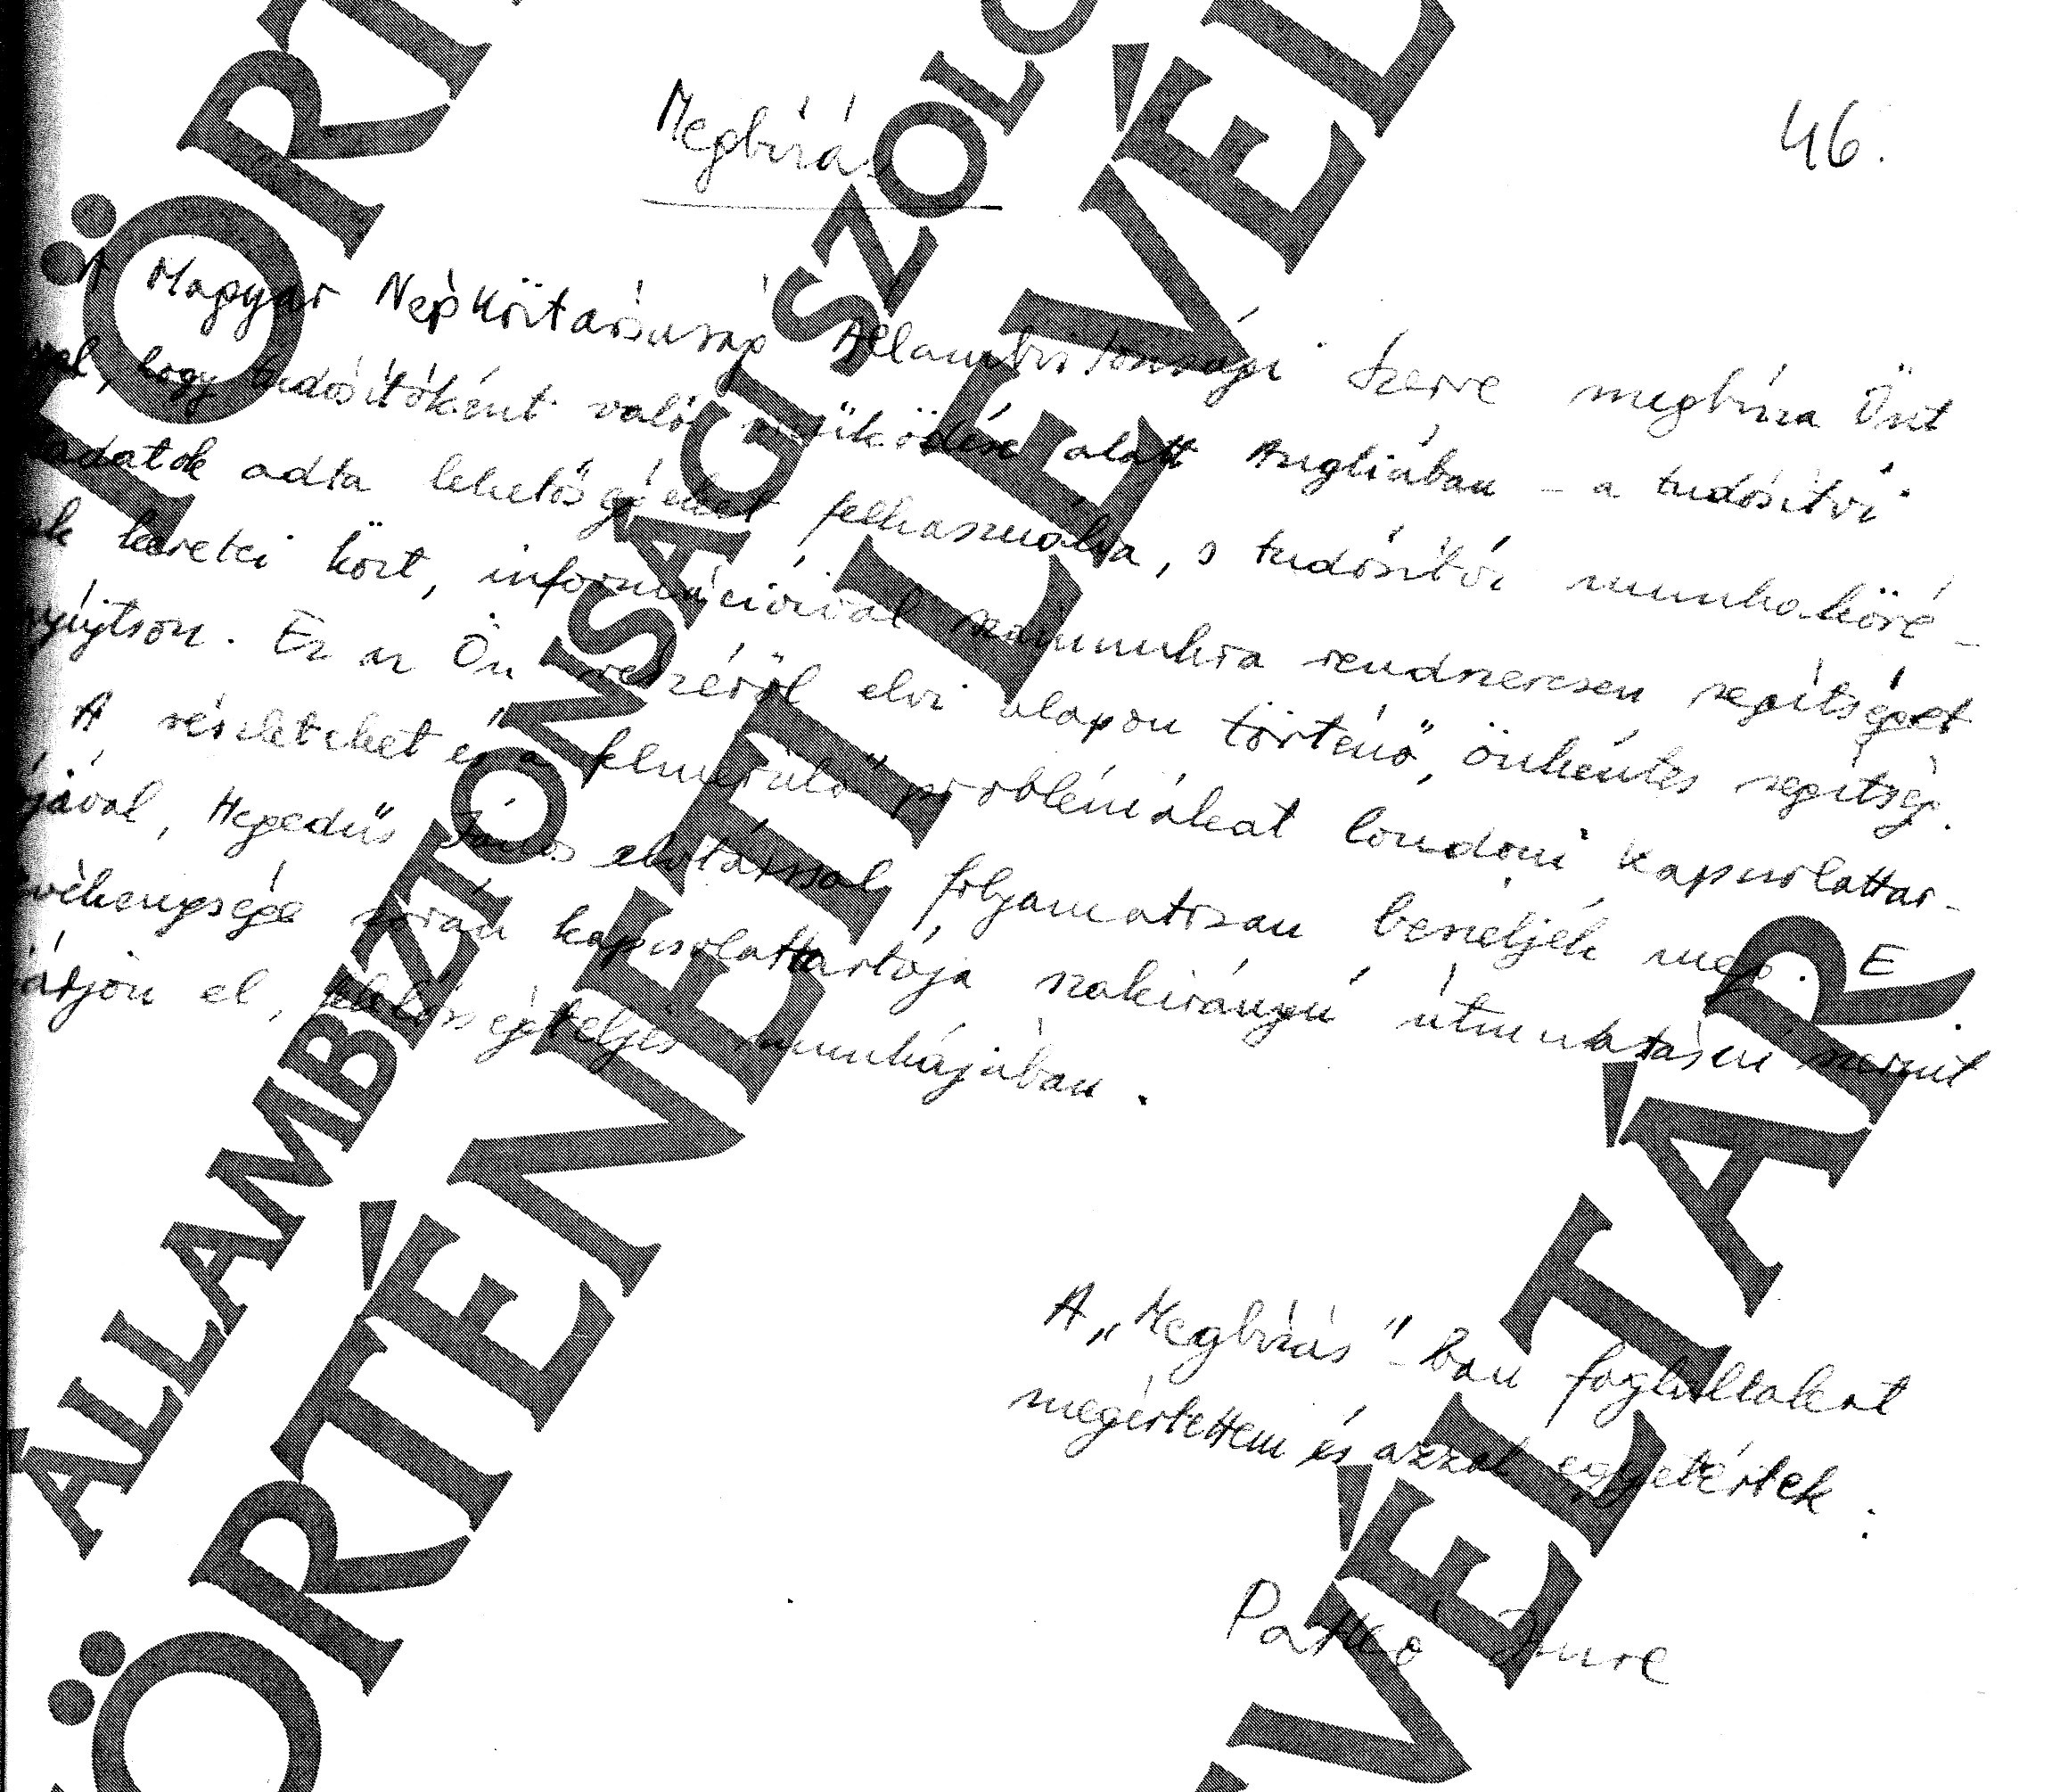 46.
Megbizás
A Magyar Népköztársaság Állambiztonsági Szerve megbizza Önt
hogy tudósítóként való működése alatt Angliában – a tudósítói
adatok adta lehetőségeket felhasználva, s tudósítói munkaköré-
keretei közt, információival számunkra rendszeresen segítséget
nyújtson. Ez az Ön részéről elvi alapon történő, önkéntes segítség.
A részleteket és a felmerülő problémákat londoni kapcsolattar-
jával, Hegedűs János elvtárssal, folyamatosan beszéljék meg. E
tevékenysége során kapcsolattartója szakirányú útmutatásai szerint
járjon el, felelősségteljes munkájában.
A „Megbizás"-ban foglaltakat
megértettem és azzal egyetértek:
Patkó Imre
ÁLLAMBIZTONSÁGI SZOLG
TÖRTÉNETI LEVÉL
TÖRT
LEVÉLTÁR